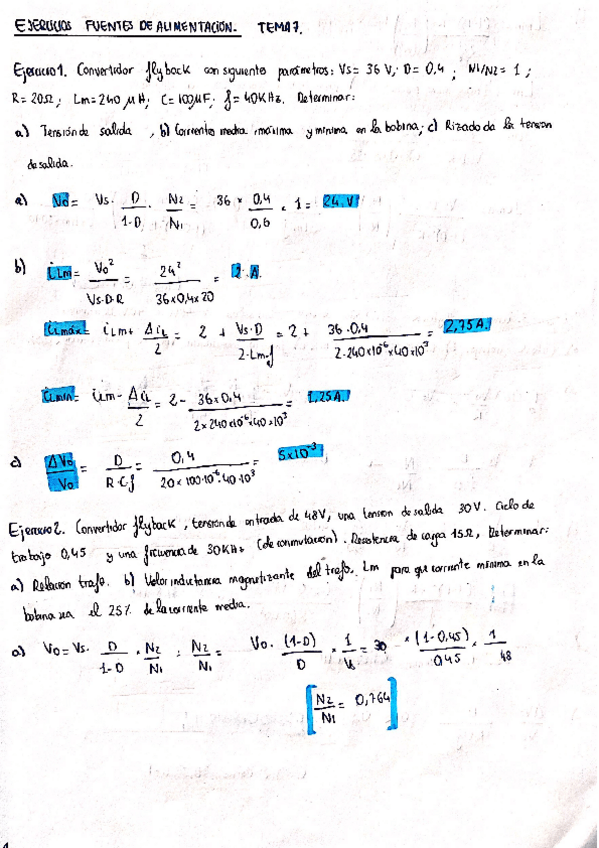 EJERCICIOS FUENTES DE ALIMENTACIÓN. TEMA 7.
Ejercicio 1. Convertidor flyback con siguientes parámetros: Vs = 36 V; D = 0,4 ; N1/N2 = 1 ;
R = 20Ω ; Lm = 240 μH ; C = 100μF ; f = 40KHz. Determinar:
a) Tensión de salida , b) Corriente media, máxima y mínima en la bobina; c) Rizado de la tension
de salida.
a) Vo = Vs · D/1-D · N2/N1 = 36 × 0,4/0,6 × 1 = 24 V
b) iLm = Vo²/Vs·D·R = 24²/36×0,4×20 = 2 A
iLmáx = iLm + ΔiL/2 = 2 + Vs·D/2·Lm·f = 2 + 36·0,4/2·240×10⁻⁶×40×10³ = 2,75A.
iLmin = iLm - ΔiL/2 = 2 - 36×0,4/2×240×10⁻⁶×40×10³ = 1,25A.
c) ΔVo/Vo = D/R·C·f = 0,4/20×100·10⁻⁶·40·10³ = 5×10⁻³
Ejercicio 2. Convertidor flyback, tensión de entrada de 48V, una tension de salida 30V. Ciclo de
trabajo 0,45 y una frecuencia de 30KHz (de conmutación). Resistencia de carga 15Ω, Determinar:
a) Relación trafo. b) Valor inductancia magnetizante del trafo. Lm para que corriente mínima en la
bobina sea el 25% de la corriente media.
a) Vo = Vs · D/1-D × N2/N1 ; N2/N1 = Vo · (1-D)/D × 1/Vs = 30 × (1-0,45)/0,45 × 1/48
[N2/N1 = 0,764]